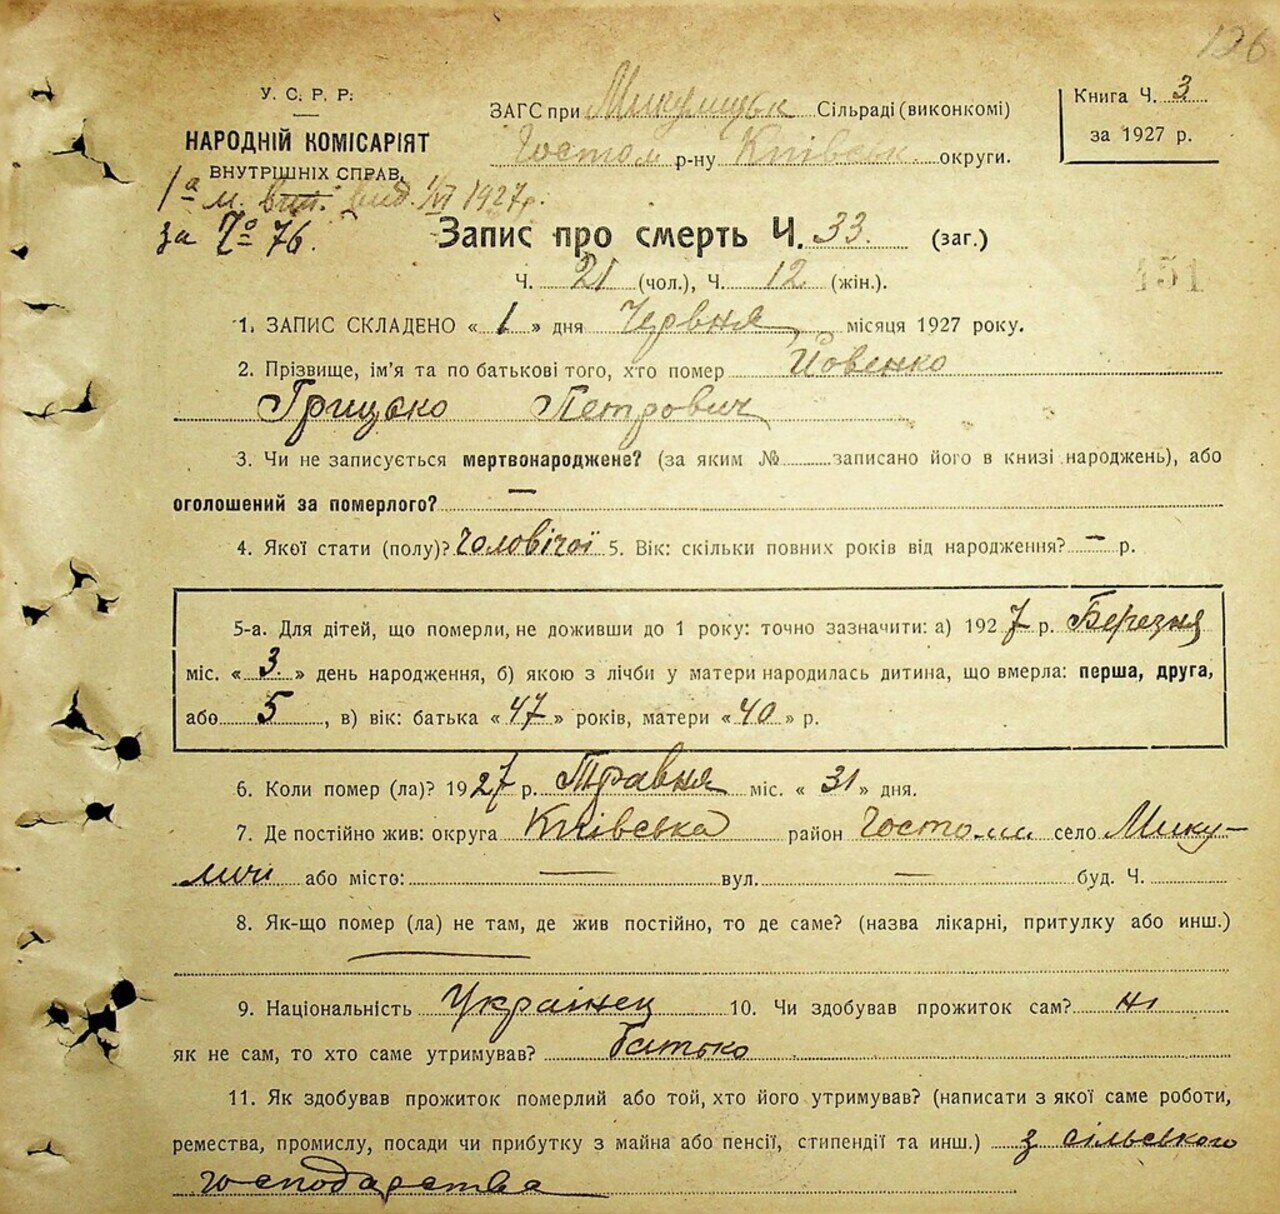 126
У. С. Р. Р.
НАРОДНІЙ КОМІСАРІЯТ
ВНУТРІШНІХ СПРАВ,
ЗАГС при Микулицьк Сільраді (виконкомі)
Гостом р-ну Київськ. округи.
Книга Ч. 3
за 1927 р.
1а м. вид. 1/VI 1927 р.
за № 76.
Запис про смерть Ч. 33. (заг.)
Ч. 21 (чол.), Ч. 12 (жін.).
151
1. ЗАПИС СКЛАДЕНО « 1 » дня Червня місяця 1927 року.
2. Прізвище, ім'я та по батькові того, хто помер Йовенко
Грицько Петрович
3. Чи не записується мертвонароджене? (за яким № записано його в книзі народжень), або
оголошений за померлого? —
4. Якої стати (полу)? Чоловічої 5. Вік: скільки повних років від народження? — р.
5-а. Для дітей, що померли, не доживши до 1 року: точно зазначити: а) 1927 р. Березня
міс. « 3. » день народження, б) якою з лічби у матери народилась дитина, що вмерла: перша, друга,
або 5, в) вік: батька « 47 » років, матери « 40 » р.
6. Коли помер (ла)? 1927 р. Травня міс. « 31 » дня.
7. Де постійно жив: округа Київська район Гостом село Мику-
личи або місто: — вул. — буд. Ч.
8. Як-що помер (ла) не там, де жив постійно, то де саме? (назва лікарні, притулку або инш.)
9. Національність Українец 10. Чи здобував прожиток сам? ні
як не сам, то хто саме утримував? батько
11. Як здобував прожиток померлий або той, хто його утримував? (написати з якої саме роботи,
ремества, промислу, посади чи прибутку з майна або пенсії, стипендії та инш.) з сільського
господарства